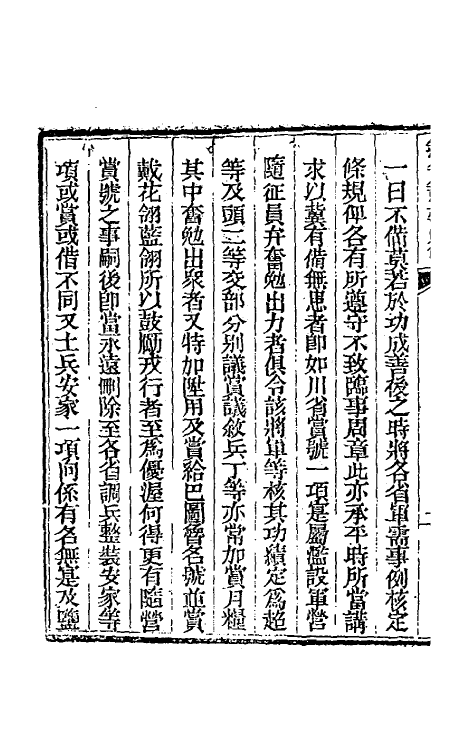 一日不備莫若於功成善後之時將各省軍需事例核定
條規俾各有所遵守不致臨事周章此亦承平時所當講
求以冀有備無患者即如川省賞號一項寔屬濫設軍營
隨征員弁奮勉出力者俱令該將軍等核其功績定為超
等及頭二等交部分別議賞議敘兵丁等亦常加賞月糧
其中奮勉出衆者又特加陞用及賞給巴圖魯名號並賞
戴花翎藍翎所以鼓勵戎行者至為優渥何得更有隨營
賞號之事嗣後即當永遠刪除至各省調兵整裝安家等
項或賞或借不同又土兵安家一項向係有名無寔及鹽